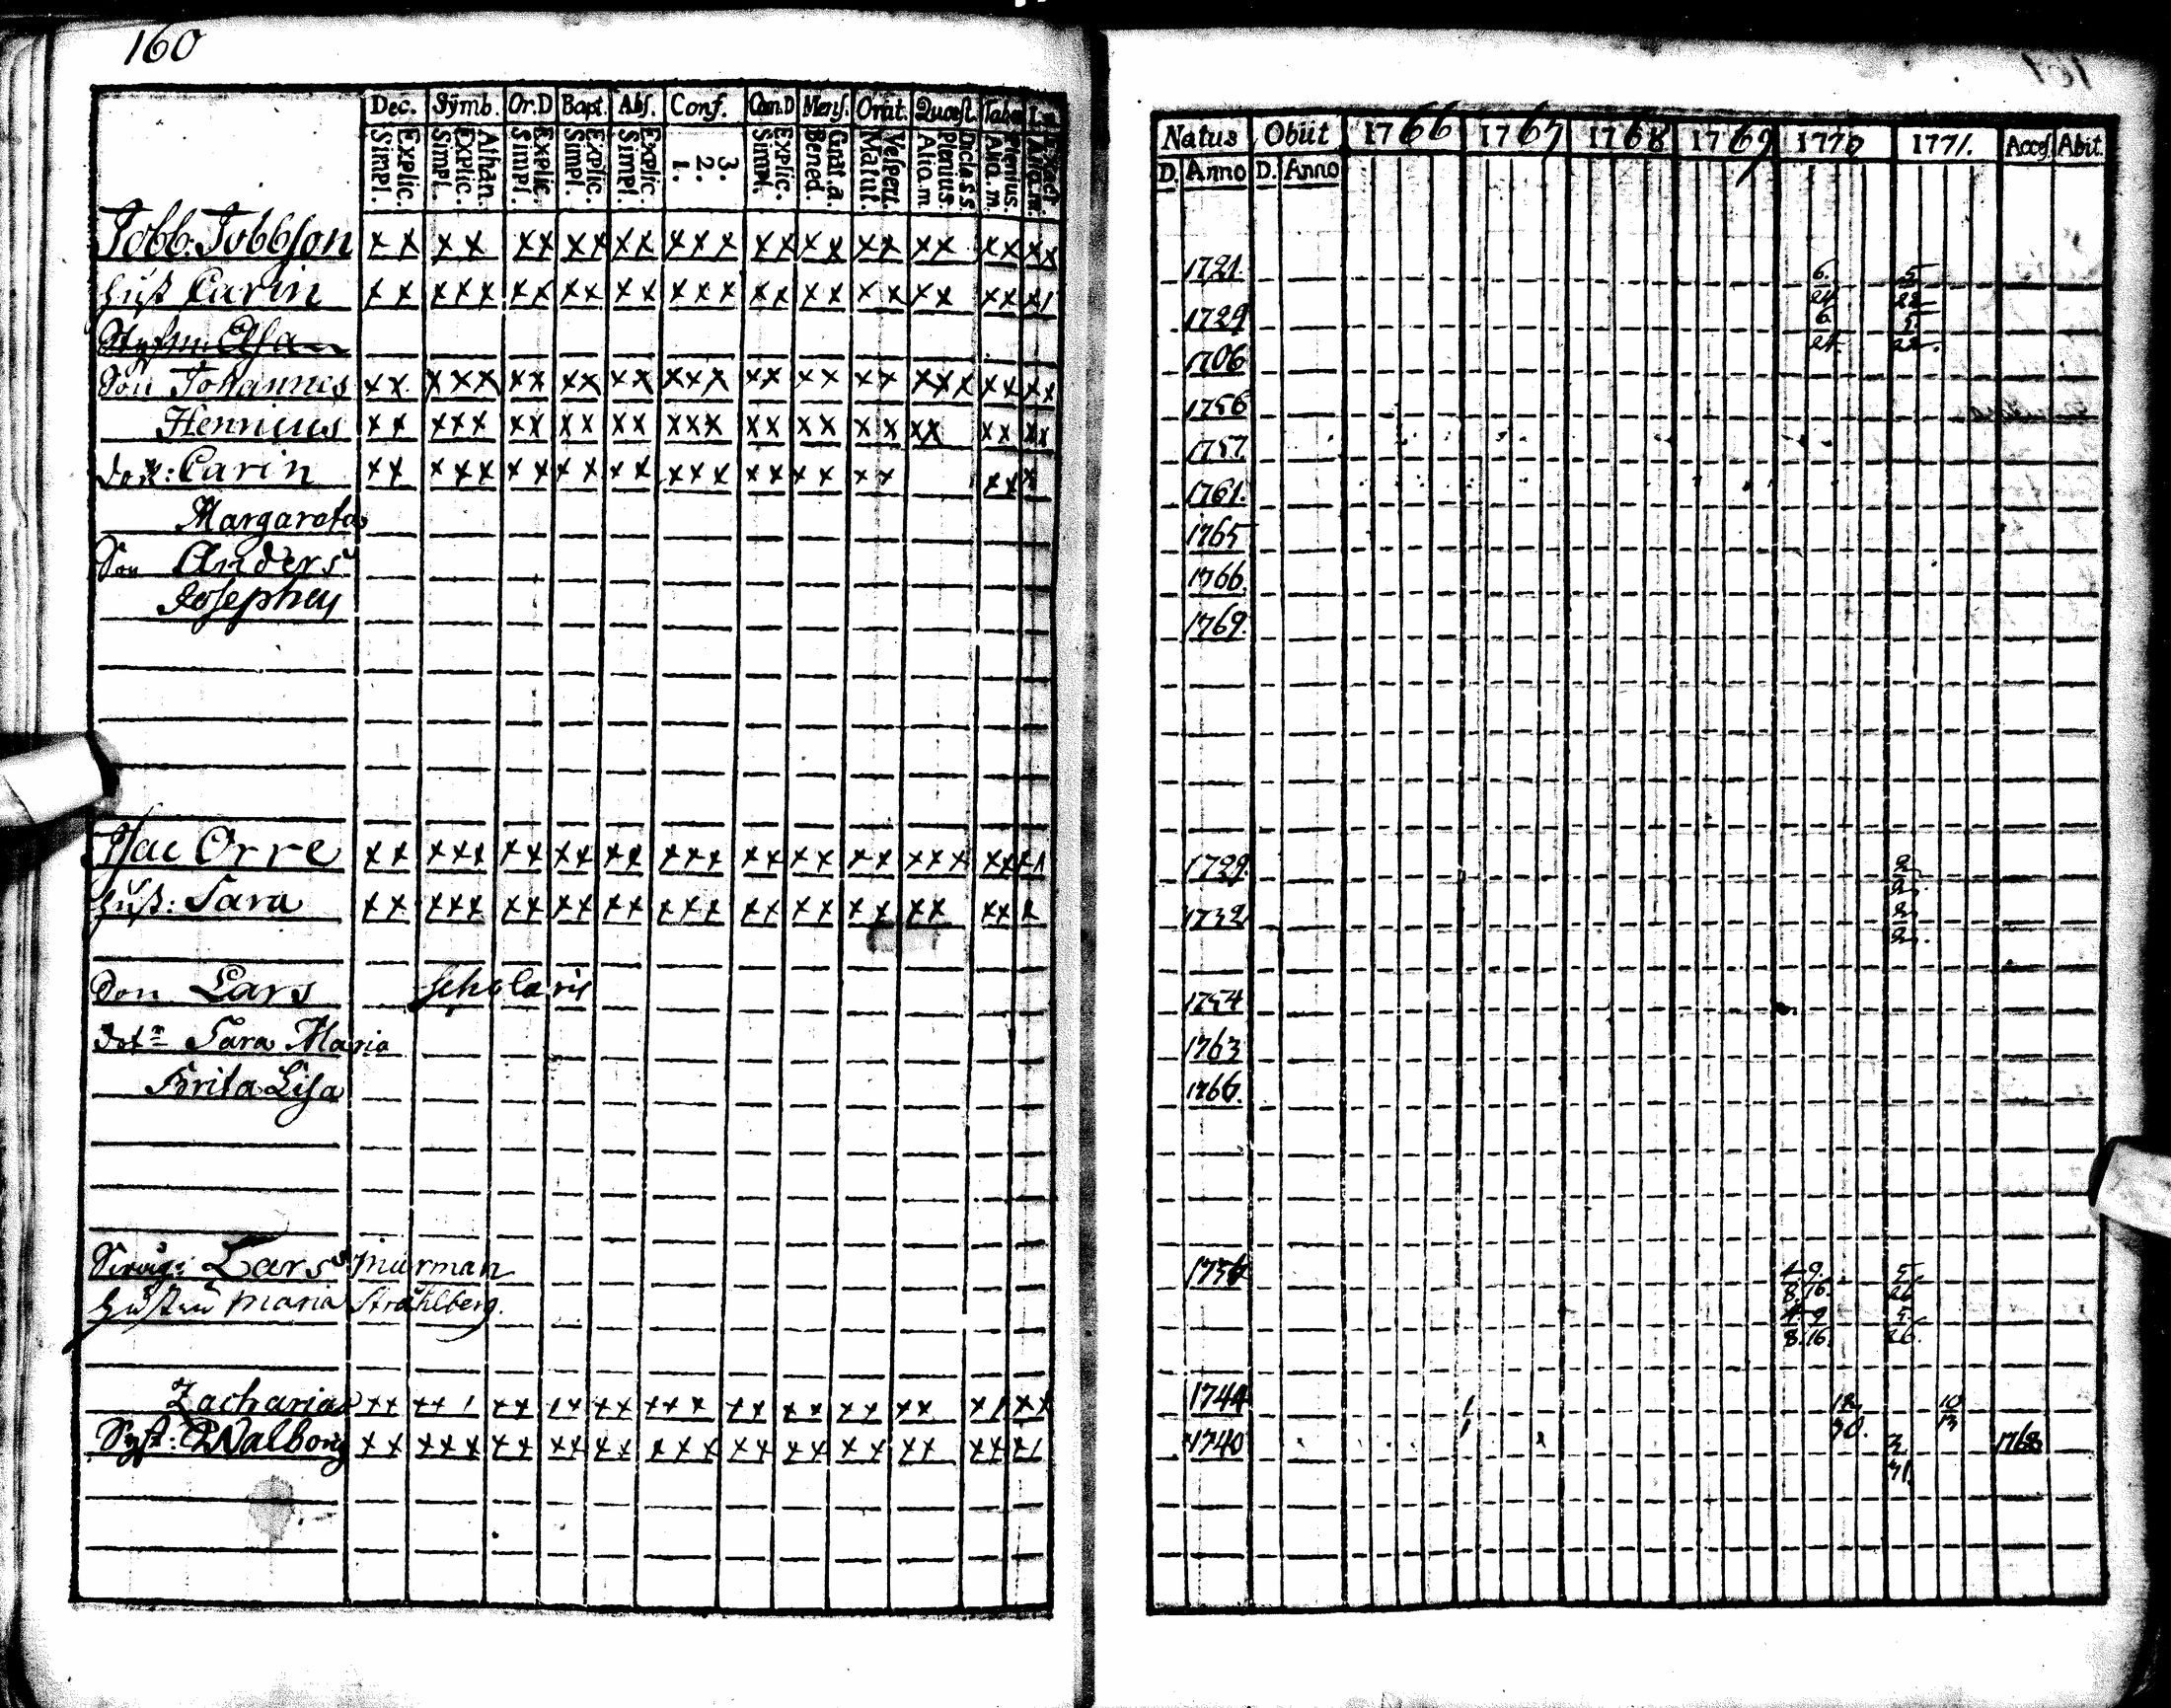 160
Dec. Sÿmb. Or.D Bapt. Abs. Conf. Cœn.D Mens. Orat. Quæst. Tabœ
Explic. Simpl. Athan. Explic. Simpl. Explic. Simpl. Explic. Simpl. Explic. Simpl. 3. 2. 1. Explic. Simpl. Grat. a. Bened. Vesperi. Matut. Dicta S.S. Plenius. Aliq.m. Plenius. Aliq.m. Exact. Aliq.m.
Jobb: Jobbson xx xx xx xx xx xxx xx xx xx xx xx xx
Hust Carin xx xxx xx xx xx xxx xx xx xx xx xx x1
Son Johannes xx xxx xx xx xx xxx xx xx xx xxx xx xx
Henricus xx xxx xx xx xx xxx xx xx xx xx xx xx
dott: Carin xx xxx xx xx xx xxx xx xx xx xx x
Margareta
Son Anders
Josephus
Isac Orre xx xxx xx xx xx xxx xx xx xx xxx xx x1
Hust: Sara xx xxx xx xx xx xxx xx xx xx xx xx x
Son Lars Scholaris
dotr Sara Maria
Brita Lisa
Lars Murman
Hustru Maria Strahlberg.
Zacharias xx xx 1 xx 1x xx xxx xx xx xx xx x1 xx
Syst: Walborg xx xxx xx xx xx xxx xx xx xx xx xx x1
Natus Obiit 1766 1767 1768 1769 1770 1771. Access. Abit.
D. Anno D. Anno
1721. 6. 24 5 22
1729 6. 24. 5. 22.
1706
1756
1757
1761.
1765
1766.
1769.
1729.
1732
1754
1763
1766.
1736 4 8. 9. 16. 5 26
4 8. 9 16. 5 26.
1744 1 1 10 13
1740 1768